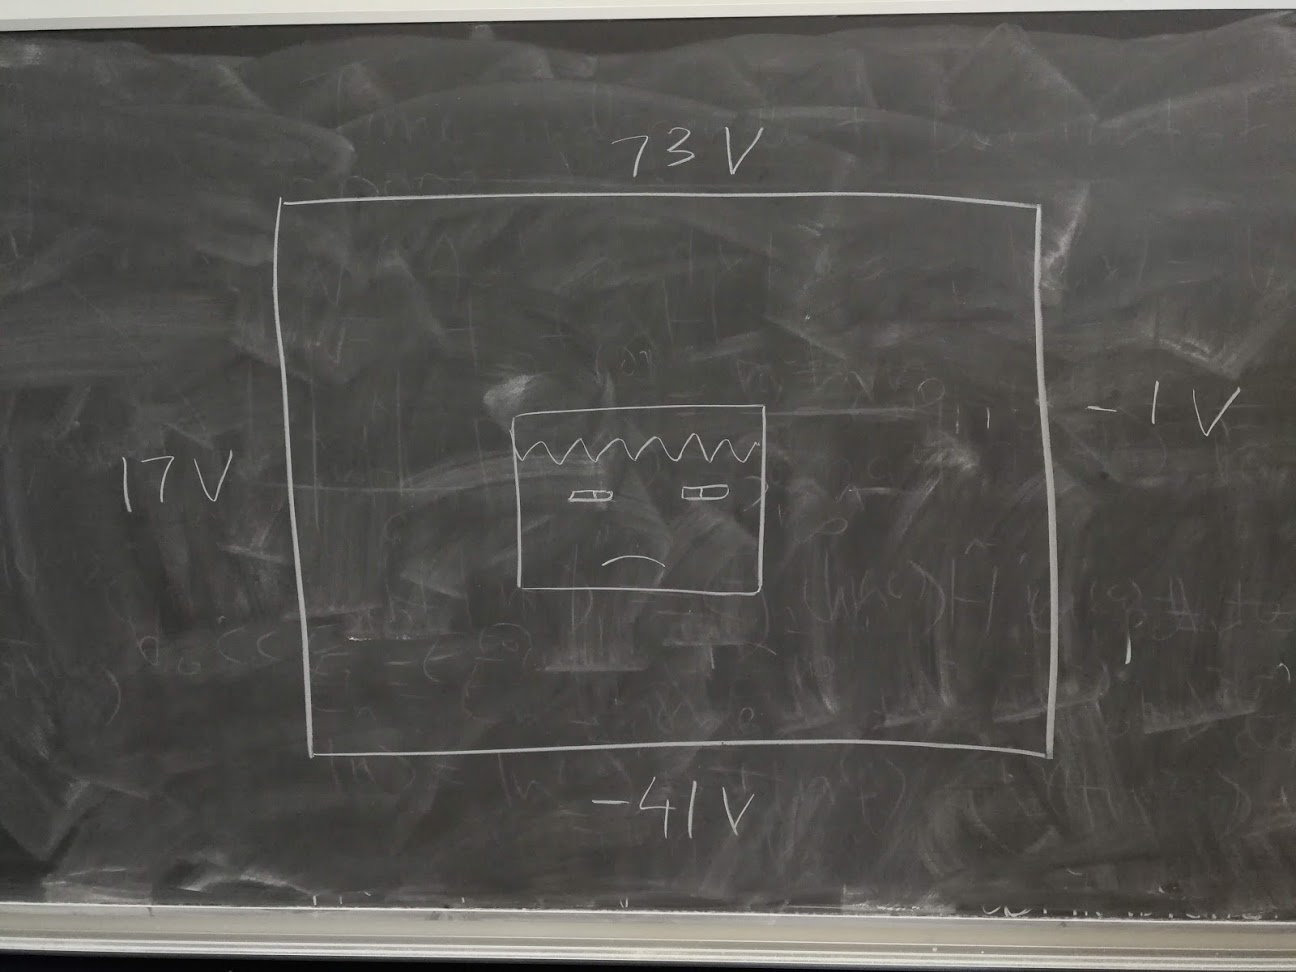 73 V
-1 V
17 V
-41 V